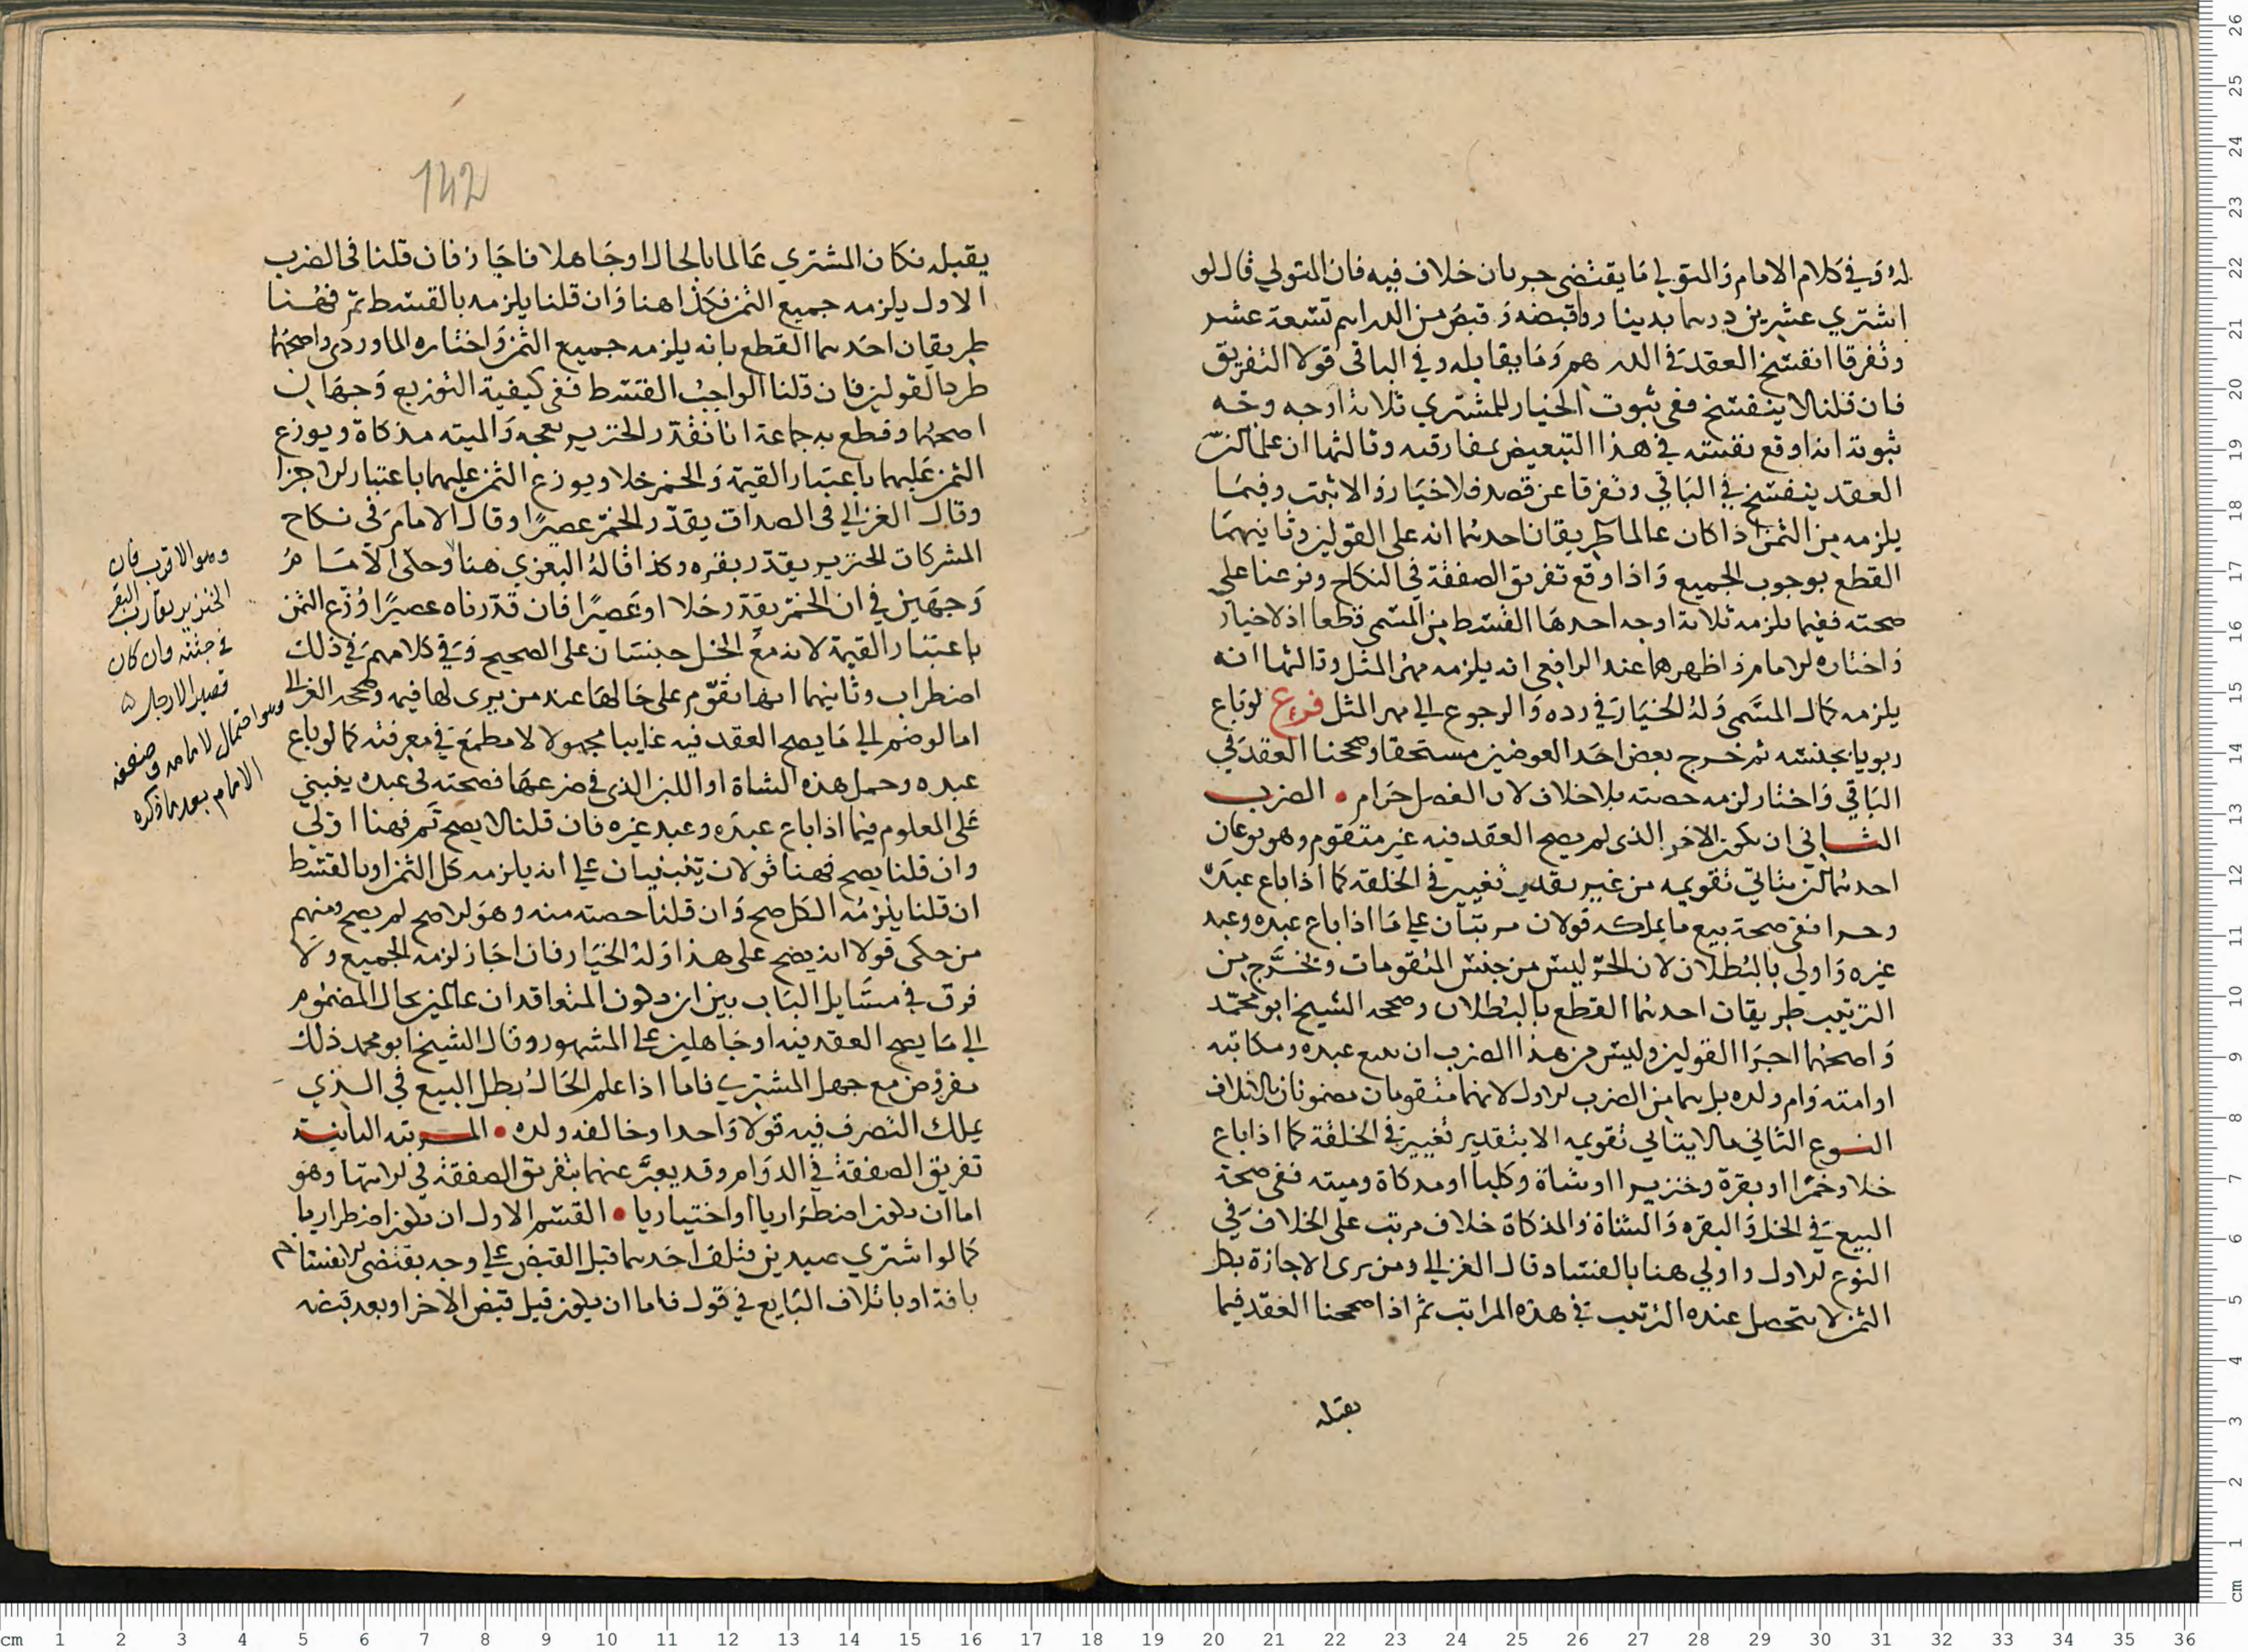 له وفي كلام الامام والمتولي ما يقتضي جريان خلاف فيه فان المتولي قال لو
اشتري عشرين درهما بدينار واقبضه وقبض من الدراهم تسعة عشر
وتفرقا انفسخ العقد في الدرهم وما يقابله وفي الباقي قولا التفريق
فان قلنا لا ينفسخ ففي ثبوت الخيار للمشتري ثلاثة اوجه وجه
ثبوته انه اوقع نفسه في هذا التبعيض بمفارقته وثالثها ان علما ان
العقد ينفسخ في الباقي وتفرقا عن قصد فلا خيار والا ثبت وفيما
يلزمه من الثمن اذا كان عالما طريقان احدهما انه على القولين وثانيهما
القطع بوجوب الجميع واذا وقع تفريق الصفقة في النكاح وفرعنا على
صحته ففيما يلزمه ثلاثة اوجه احدها القسط من المسمى قطعا اذ لا خيار
واختاره الامام واظهرهما عند الرافعي انه يلزمه مهر المثل وثالثها انه
يلزمه كمال المسمى وله الخيار في رده والرجوع الى مهر المثل فرع لو باع
ربويا بجنسه ثم خرج بعض احد العوضين مستحقا وصححنا العقد في
الباقي واختار لزمه حصته بلا خلاف لان الفضل حرام • الضرب
الثاني ان يكون الاخر الذي لم يصح العقد فيه غير متقوم وهو نوعان
احدهما ان يتاتي تقويمه من غير تقدير تغيير في الخلقة كما اذا باع عبده
وحرا ففي صحة بيع ما يملكه قولان مرتبان على ما اذا باع عبده وعبد
غيره واولى بالبطلان لان الحر ليس من جنس المتقومات ويخرج من
الترتيب طريقان احدهما القطع بالبطلان وصححه الشيخ ابو محمد
واصحهما اجرا القولين وليس من هذا الضرب ان يبيع عبده ومكاتبه
او امته وام ولده بل هما من الضرب الاول لانهما متقومان مضمونان بالاتلاف
النوع الثاني ما لا يتاتي تقويمه الا بتقدير تغيير في الخلقة كما اذا باع
خلا وخمرا او بقرة وخنزيرا او شاة وكلبا او مذكاة وميته ففي صحة
البيع في الخل والبقره والشاة والمذكاة خلاف مرتب على الخلاف في
النوع الاول واولى هنا بالفساد قال الغزالي ومن يرى الاجازة بكل
الثمن لا يتحصل عنده الترتيب في هذه المراتب ثم اذا صححنا العقد فيما
يقبله
142
يقبله فكان المشتري عالما بالحال او جاهلا فاجاز فان قلنا في الضرب
الاول يلزمه جميع الثمن فكذا هنا وان قلنا يلزمه بالقسط ثم فهنا
طريقان احدهما القطع بانه يلزمه جميع الثمن واختاره الماوردي واصحهما
طرد القولين فان قلنا الواجب القسط ففي كيفية التوزيع وجهان
اصحهما وقطع به جماعة انا نقدر الخنزير نعجه والميته مذكاة ويوزع
الثمن عليهما باعتبار القيمة والخمر خلا ويوزع الثمن عليهما باعتبار الاجزا
وقال الغزالي في الصداق يقدر الخمر عصيرا وقال الامام في نكاح
المشركات الخنزير يقدر بقره وكذا قاله البغوي هنا وحكى الامام
وجهين في ان الخمر يقدر خلا او عصيرا فان قدرناه عصيرا وزع الثمن
باعتبار القيمة لانه مع الخل جنسان على الصحيح وفي كلامهم في ذلك
اضطراب وثانيهما انها تقوم على حالها عند من يرى لها قيمه وصححه الغزالي
اما لو ضم الى ما يصح العقد فيه غايبا مجهولا لا مطمع في معرفته كما لو باع
عبده وحمل هذه الشاة او اللبن الذي في ضرعها فصحته في عبده ينبني
على المعلوم فيما اذا باع عبده وعبد غيره فان قلنا لا يصح ثم فهنا اولى
وان قلنا يصح فهنا قولان ينبنيان على انه يلزمه كل الثمن او بالقسط
ان قلنا يلزمه الكل صح وان قلنا حصته منه وهو الاصح لم يصح ومنهم
من حكى قولا انه يصح على هذا وله الخيار فان اجاز لزمه الجميع ولا
فرق في مسايل الباب بين ان يكون المتعاقدان عالمين بحال المضموم
الى ما يصح العقد فيه او جاهلين على المشهور وقال الشيخ ابو محمد ذلك
مفروض مع جهل المشتري فاما اذا علم الحال بطل البيع في الذي
يملك التصرف فيه قولا واحدا وخالفه ولده • المرتبة الثانية
تفريق الصفقة في الدوام وقد يعبر عنهما بتفريق الصفقة في الانتها وهو
اما ان يكون اضطراريا او اختياريا • القسم الاول ان يكون اضطراريا
كما لو اشترى عبدين فتلف احدهما قبل القبض على وجه يقتضي الانفساخ
بافة او باتلاف البايع في قول فاما ان يكون قبل قبض الاخر او بعد قبضه
وهو الاقرب فان
الخنزير يقارب البقر
في جثته وان كان
قصير الارجل
وهو احتمال لامامه
الامام بعد ما ذكره